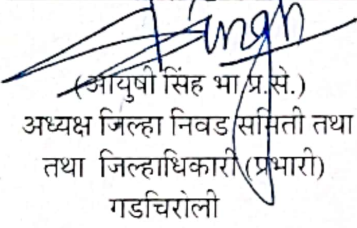 Singh
(आयुषी सिंह भा.प्र.से.)
अध्यक्ष जिल्हा निवड समिती तथा
तथा जिल्हाधिकारी (प्रभारी)
गडचिरोली